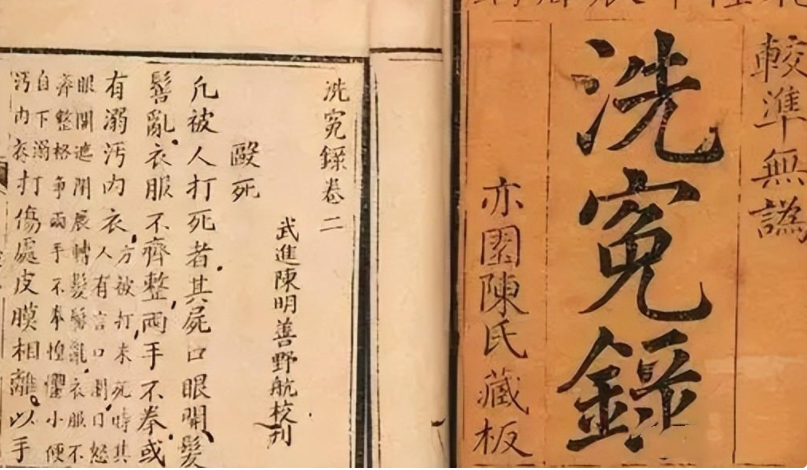 較準無譌
洗冤錄
亦園陳氏藏板
洗冤錄卷二
武進陳明善野航校刊
毆死
凡被人打死者其屍口眼開髮
髻亂衣服不齊整兩手不拳或
有溺汚內衣
方被打未死時其
人有言口開口怒
眼開遮閉展轉髮髻亂衣服不
齊整格爭兩手不拳惶懼小便
自下溺
汚內衣
打傷處皮膜相離以手